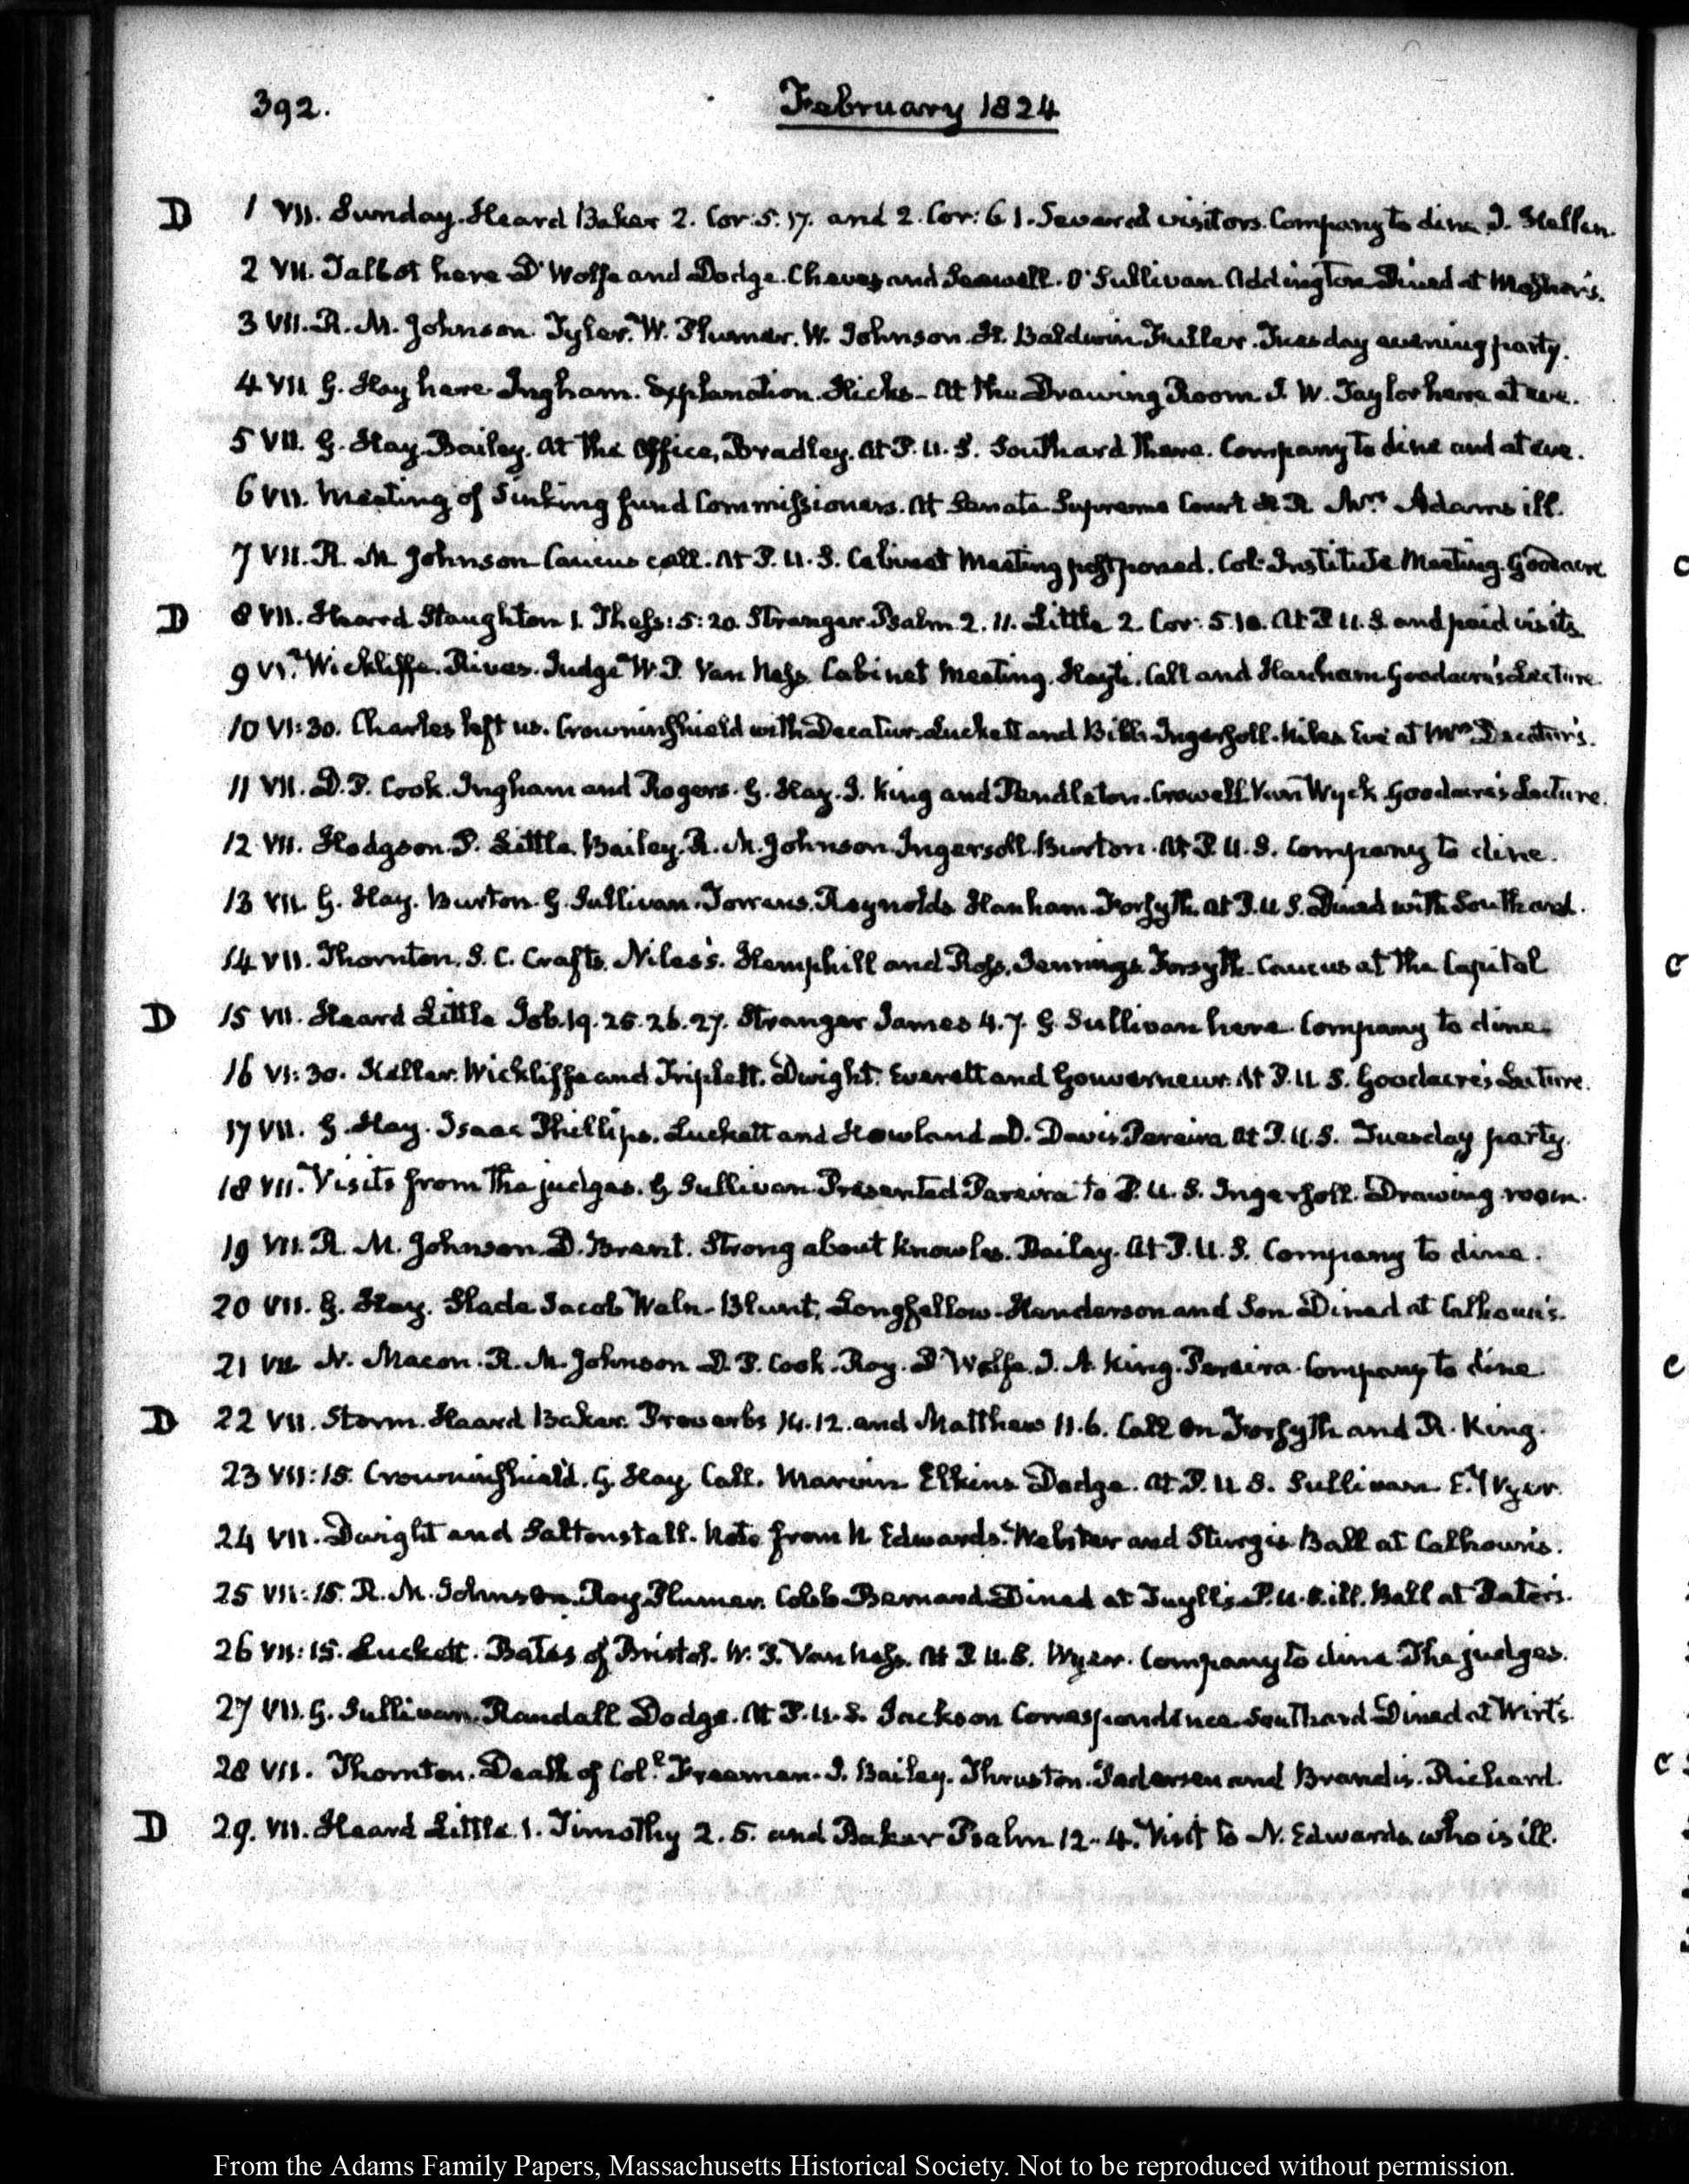 392.
February 1824
D 1 VII. Sunday. Heard Baker 2. Cor: 5. 17. and 2. Cor: 6 1. Several visitors. Company to dine J. Hellen.
2 VII. Talbot here D'Wolfe and Dodge. Cheves and Seawell. O'Sullivan Addington Dined at
3 VII. R. M. Johnson. Tyler. W. Plumer. W. Johnson. H. Baldwin Fuller. Tuesday evening party.
4 VII G. Hay here Ingham. Explanation. Hicks- At the Drawing Room J. W. Taylor here at eve.
5 VII. G. Hay. Bailey. At the Office, Bradley. At P. U. S. Southard there. Company to dine and at eve.
6 VII. Meeting of Sinking fund Commissioners. At Senate Supreme Court H R Mrs Adams ill.
7 VII. R. M Johnson Caucus call. At P. U. S. Cabinet Meeting postponed. Col: Institute Meeting. Goodacre
D 8 VII. Heard Staughton 1. Thess: 5: 20. Stranger Psalm 2. 11. Little 2. Cor: 5. 10. At P U. S. and paid visits
9 VI. Wickliffe. Rives. Judge W. P. Van Ness. Cabinet Meeting. Hayti. Call and Hanham Goodacre's Lecture.
10 VI: 30. Charles left us. Crowninshield with Decatur. Luckett and Bibb. Ingersoll. Niles Eve at Mrs Decatur's.
11 VII. D. P. Cook. Ingham and Rogers. G. Hay. J. King and Pendleton. Crowell. Van Wyck Goodacre's Lecture.
12 VII. Hodgson. P. Little. Bailey. R. M. Johnson. Ingersoll. Burton. At P. U. S. Company to dine.
13 VII. G. Hay. Burton. G. Sullivan. Torrens. Reynolds Hanham. Forsyth. at P. U S. Dined with Southard.
14 VII. Thornton. S. C. Crafts. Niles's. Hemphill and Ross. Jennings. Forsyth. Caucus at the Capitol
D 15 VII. Heard Little Job. 19. 25. 26. 27. Stranger James 4. 7. G Sullivan here. Company to dine.
16 VI: 30. Keller. Wickliffe and Triplett. Dwight. Everett and Gouverneur. At P. U S. Goodacre's Lecture.
17 VII. G. Hay. Isaac Phillips. Luckett and Howland D. Davis. Pereira At P. U. S. Tuesday party.
18 VII. Visits from the judges. G Sullivan Presented Pereira to P. U. S. Ingersoll. Drawing room.
19 VII. R. M. Johnson. D. Brent. Strong about Knowles. Bailey. At P. U. S. Company to dine.
20 VII. G. Hay. Slade Jacob Waln. Blunt. Longfellow. Henderson and Son Dined at Calhoun's.
21 VII N. Macon. R. M. Johnson D. P. Cook. Roy. D'Wolfe. J. A. King. Pereira. Company to dine
D 22 VII. Storm. Heard Baker. Proverbs 14. 12. and Matthew 11. 6. Call on Forsyth and R. King.
23 VII: 15. Crowninshield. G. Hay. Call. Marvin Elkins Dodge. At P. U S. Sullivan. E. Wyer.
24 VII. Dwight and Saltonstall. Note from N Edwards. Webster and Sturgis Ball at Calhoun's.
25 VII: 15. R. M. Johnson. Roy Plumer. Cobb Bernard. Dined at Tuyll's P. U. S. ill. Ball at Pater's.
26 VII: 15. Luckett. Bates of Bristol. W. P. Van Ness. At P U. S. Wyer. Company to dine The judges.
27 VII. G. Sullivan. Randall Dodge. At P. U. S. Jackson Correspondence Southard Dined at Wirt's.
28 VII. Thornton. Death of Coll. Freeman. J. Bailey. Thruston. Pedersen and Brandis. Richard.
D 29. VII. Heard Little. 1. Timothy 2. 5. and Baker Psalm 12. 4. Visit to N. Edwards who is ill.
From the Adams Family Papers, Massachusetts Historical Society. Not to be reproduced without permission.